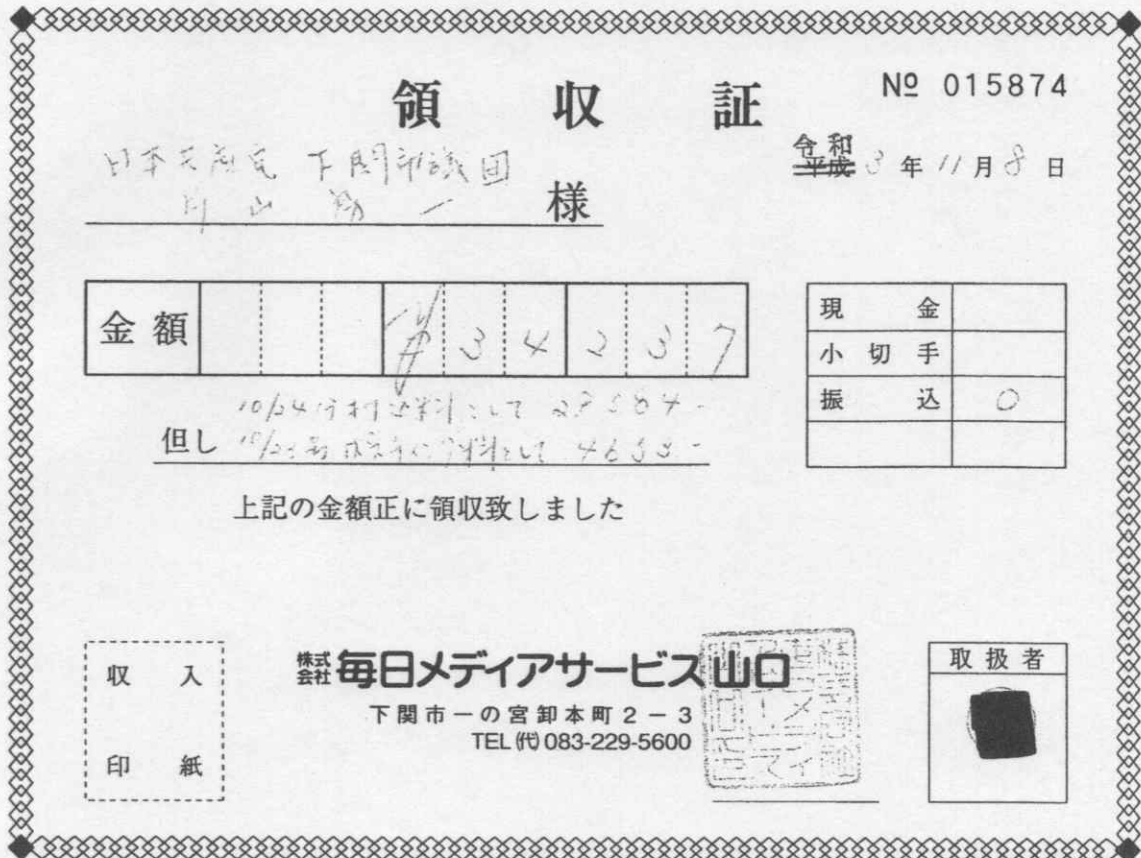 領収証
№ 015874
令和
平成 3年11月8日
日本共産党 下関市議団
片山 房一 様
金額 ¥34237
現金
小切手
振込 ○
10/24 折込料として
但し 10/24 として
上記の金額正に領収致しました
収入
印紙
株式会社 毎日メディアサービス山口
下関市一の宮卸本町2-3
TEL(代)083-229-5600
取扱者